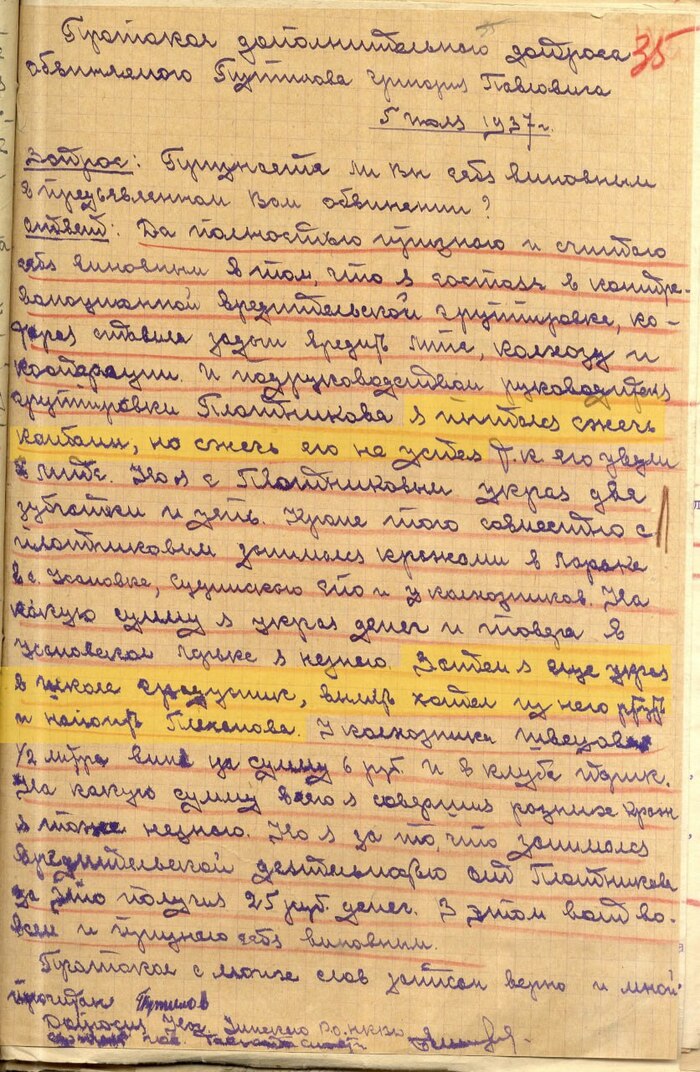 35
Протокол дополнительного допроса
обвиняемого Путилова Григория Павловича
5 июля 1937 г.
Вопрос: Признаете ли Вы себя виновным
в предъявленном Вам обвинении?
Ответ: Да полностью признаю и считаю
себя виновным в том, что я состоял в контре-
волюционной вредительской группировке, ко-
торая ставила задачи вредить мтс, колхозу и
кооперации. И под руководством руководителя
группировки Плотникова я пытался сжечь
комбайн, но сжечь его не успел т.к его увели
в мтс. Но я с Плотниковым украл две
и цепь. Кроме того совместно с
плотниковым занимался кражами в ларьке
в с. Усановка, и у колхозников. На
какую сумму я украл денег и товара в
усановском ларьке я незнаю. Затем я еще украл
в школе градусник, вылить хотел из него ртуть
и напоить Плеханова. У колхозника швецова
1/2 литра вина на сумму 6 руб. и в клубе парик.
На какую сумму всего я совершил разных краж
я тоже незнаю. Но я за то, что занимался
вредительской деятельностью от Плотникова
за это получил 25 руб. денег. В этом вот во-
всем и признаю себя виновным.
Протокол с моих слов записан верно и мной
прочитан Путилов
Допросил РО НКВД